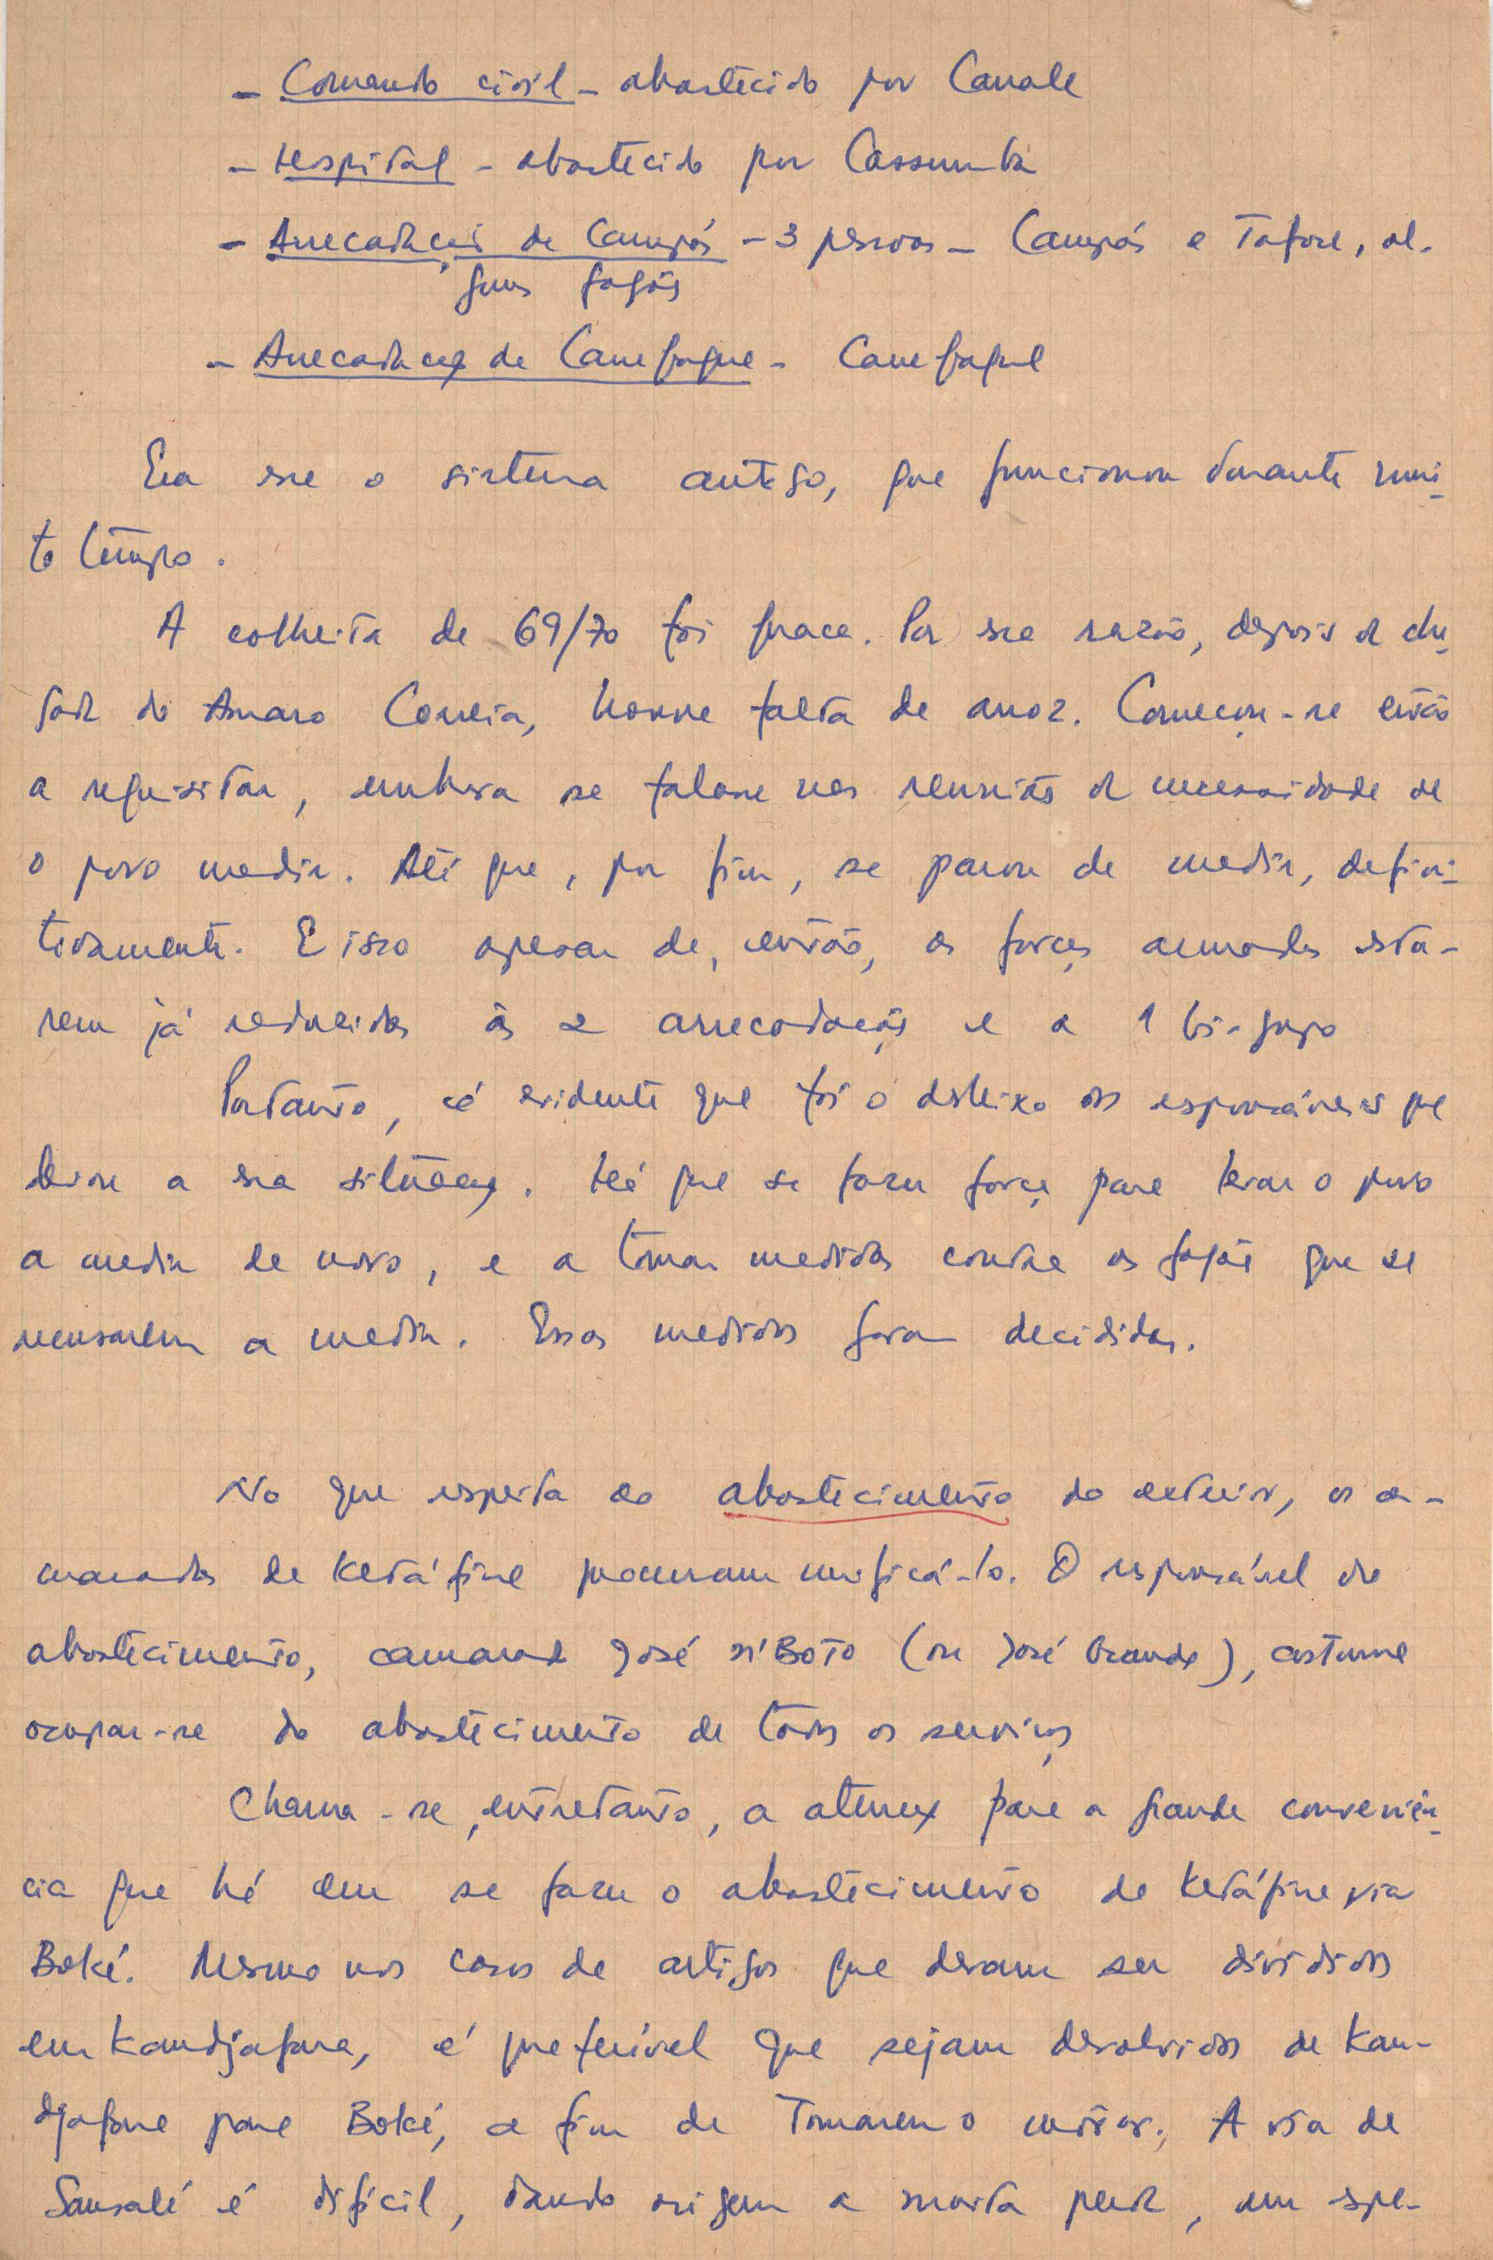 - Comando civil - abastecido por Canale
- Hospital - abastecido por Cassumba
- Arrecadações de Campós - 3 pessoas - Campós e Tafore, al-
guns fogões
- Arrecadação de Canefaque - Canefaque
Era esse o sistema antigo, que funcionou durante mui-
to tempo.
A colheita de 69/70 foi fraca. Por essa razão, depois da che-
gada do Amaro Correia, houve falta de arroz. Começou-se então
a requisitar, embora se falasse nas reuniões da necessidade de
o povo medir. Até que, por fim, se parou de medir, defini-
tivamente. E isso apesar de, então, as forças armadas esta-
rem já reduzidas às 2 arrecadações e a 1 bi-grupo
Portanto, é evidente que foi o desleixo dos responsáveis que
levou a essa situação. Há que se fazer força para levar o povo
a medir de novo, e a tomar medidas contra os fogões que se
recusarem a medir. Essas medidas foram decididas.
No que respeita ao abastecimento do exterior, os ca-
maradas de Ketáfine procuram unificá-lo. O responsável do
abastecimento, camarada José N'Boto (ou José Grande), costuma
ocupar-se do abastecimento de todos os serviços
Chama-se, entretanto, a atenção para a grande conveniên-
cia que há em se fazer o abastecimento de Ketáfine via
Boké. Mesmo nos casos de artigos que devam ser divididos
em Kandjafara, é preferível que sejam devolvidos de Kan-
djafara para Boké, a fim de tomarem o . A via de
Sansalé é difícil, dando origem a muita perda, em espe-